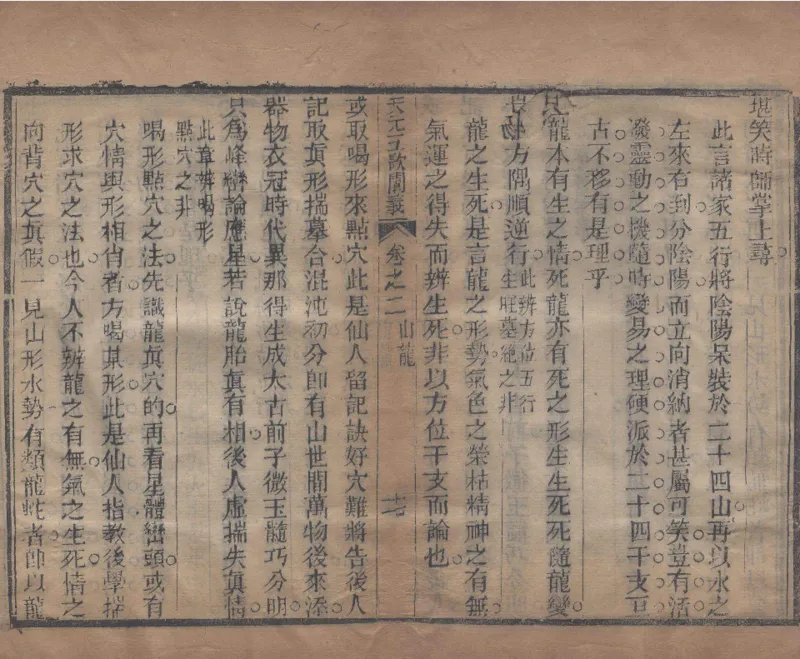 堪笑時師掌上尋
此言諸家五行將陰陽呆裝於二十四山再以水之
左來右到分陰陽而立向消納者甚屬可笑豈有活
潑靈動之機隨時變易之理硬派於二十四干支亘
古不移有是理乎
只龍本有生之情死龍亦有死之形生生死死隨龍變
方隅順逆行此辨方位五行
生旺墓絕之非
龍之生死是言龍之形勢氣色之榮枯精神之有無
氣運之得失而辨生死非以方位干支而論也
天元五歌闡義
卷之二
山龍
或取喝形來點穴此是仙人留記訣好穴難將告後人
記取眞形揣摹合混沌初分卽有山世間萬物後來添
器物衣冠時代異那得生成太古前子微玉髓巧分明
只爲峰巒論應星若說龍胎眞有相後人虛揣失眞情
此章辨喝形
點穴之非
喝形點穴之法先識龍眞穴的再看星體巒頭或有
穴情與形相肖者方喝某形此是仙人指教後學揣
形求穴之法也今人不辨龍之有無氣之生死情之
向背穴之眞假一見山形水勢有類龍蛇者卽以龍